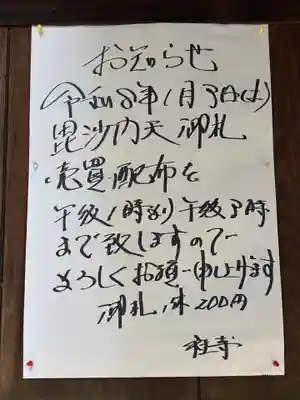 お知らせ
令和8年1月3日(土)
毘沙門天御札
売買配布を
午後1時より午後3時
まで致しますので
よろしくお願い申し上げます
御札1体200円
社寺